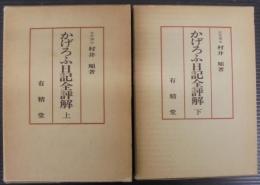 村井 順著
かげろふ日記全評解 上
有精堂
村井 順著
かげろふ日記全評解 下
有精堂